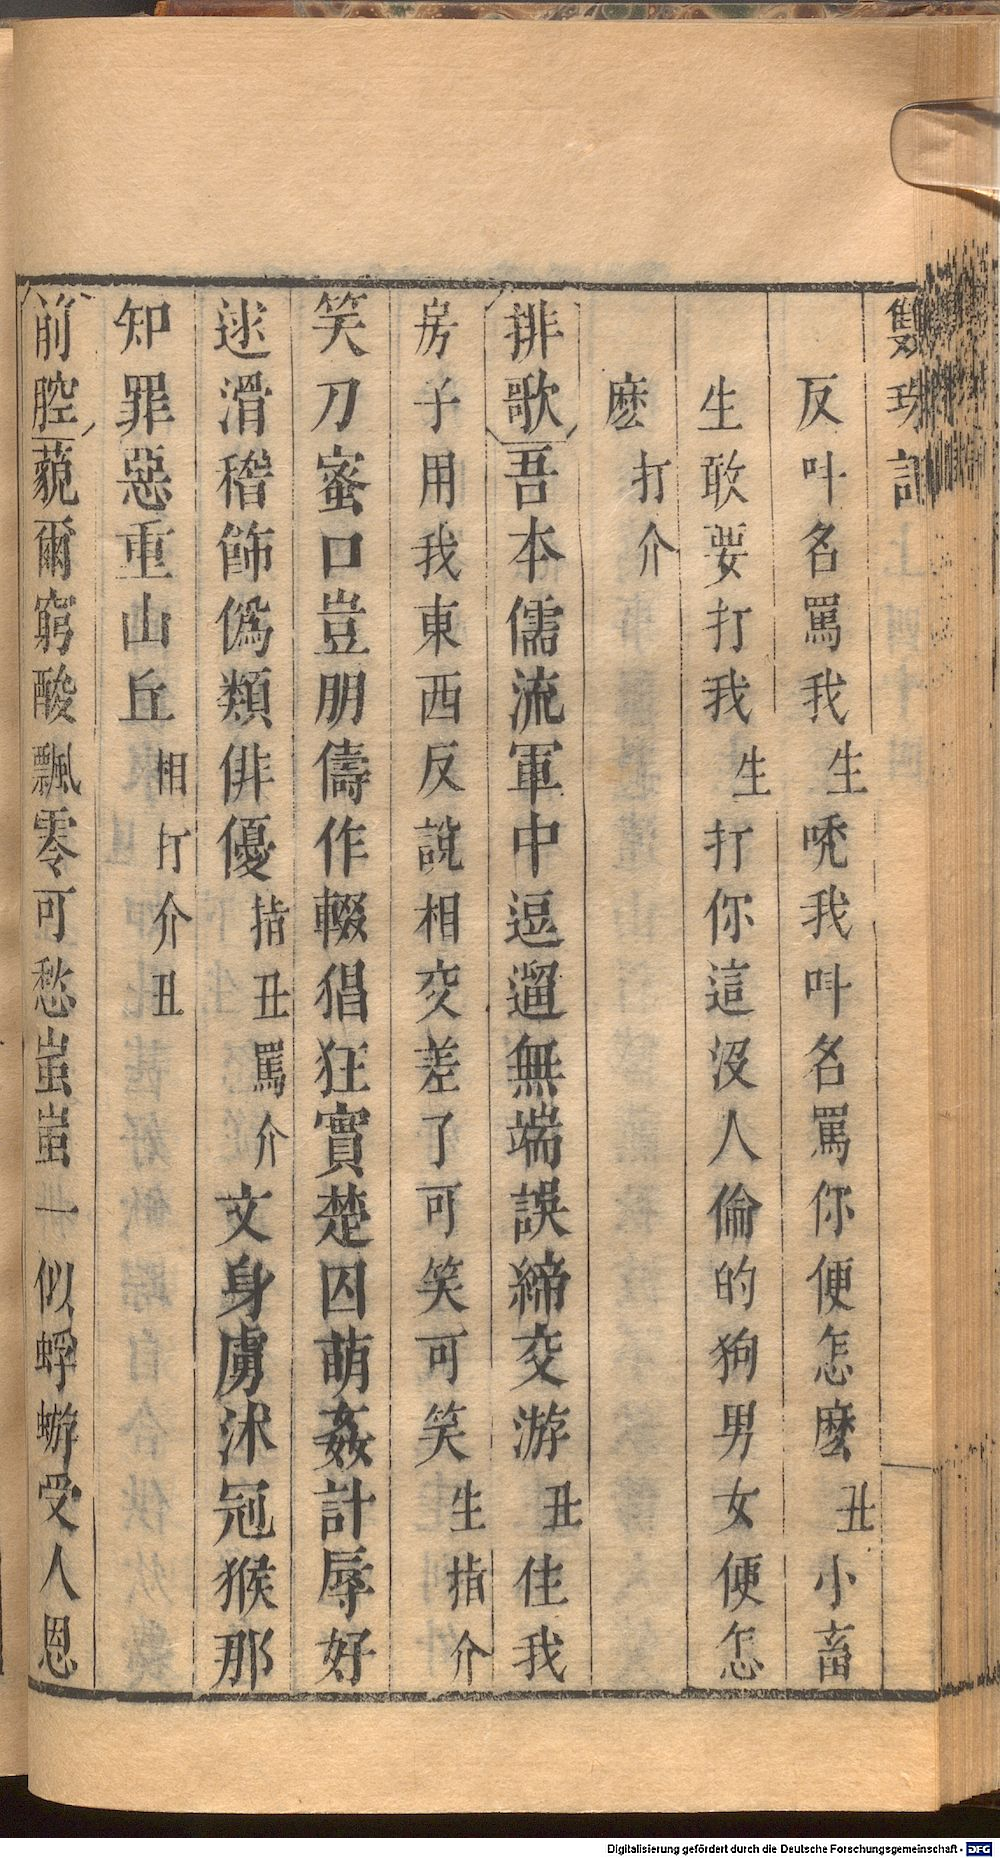 雙珠記
反叫名罵我生唬我叫名罵你便怎麽丑小畜
生敢要打我生打你這沒人倫的狗男女便怎
麽打介
排歌吾本儒流軍中逗遛無端誤締交游丑住我
房子用我東西反說相交差了可笑可笑生指介
笑刀蜜口豈朋儔作輟猖狂實楚囚萌姦計辱好
逑滑稽飾僞類俳優指丑罵介文身虜沭冠猴那
知罪惡重山丘相打介丑
前腔藐爾窮酸飄零可愁蚩蚩一似蜉蝣受人恩
Digitalisierung gefördert durch die Deutsche Forschungsgemeinschaft - DFG